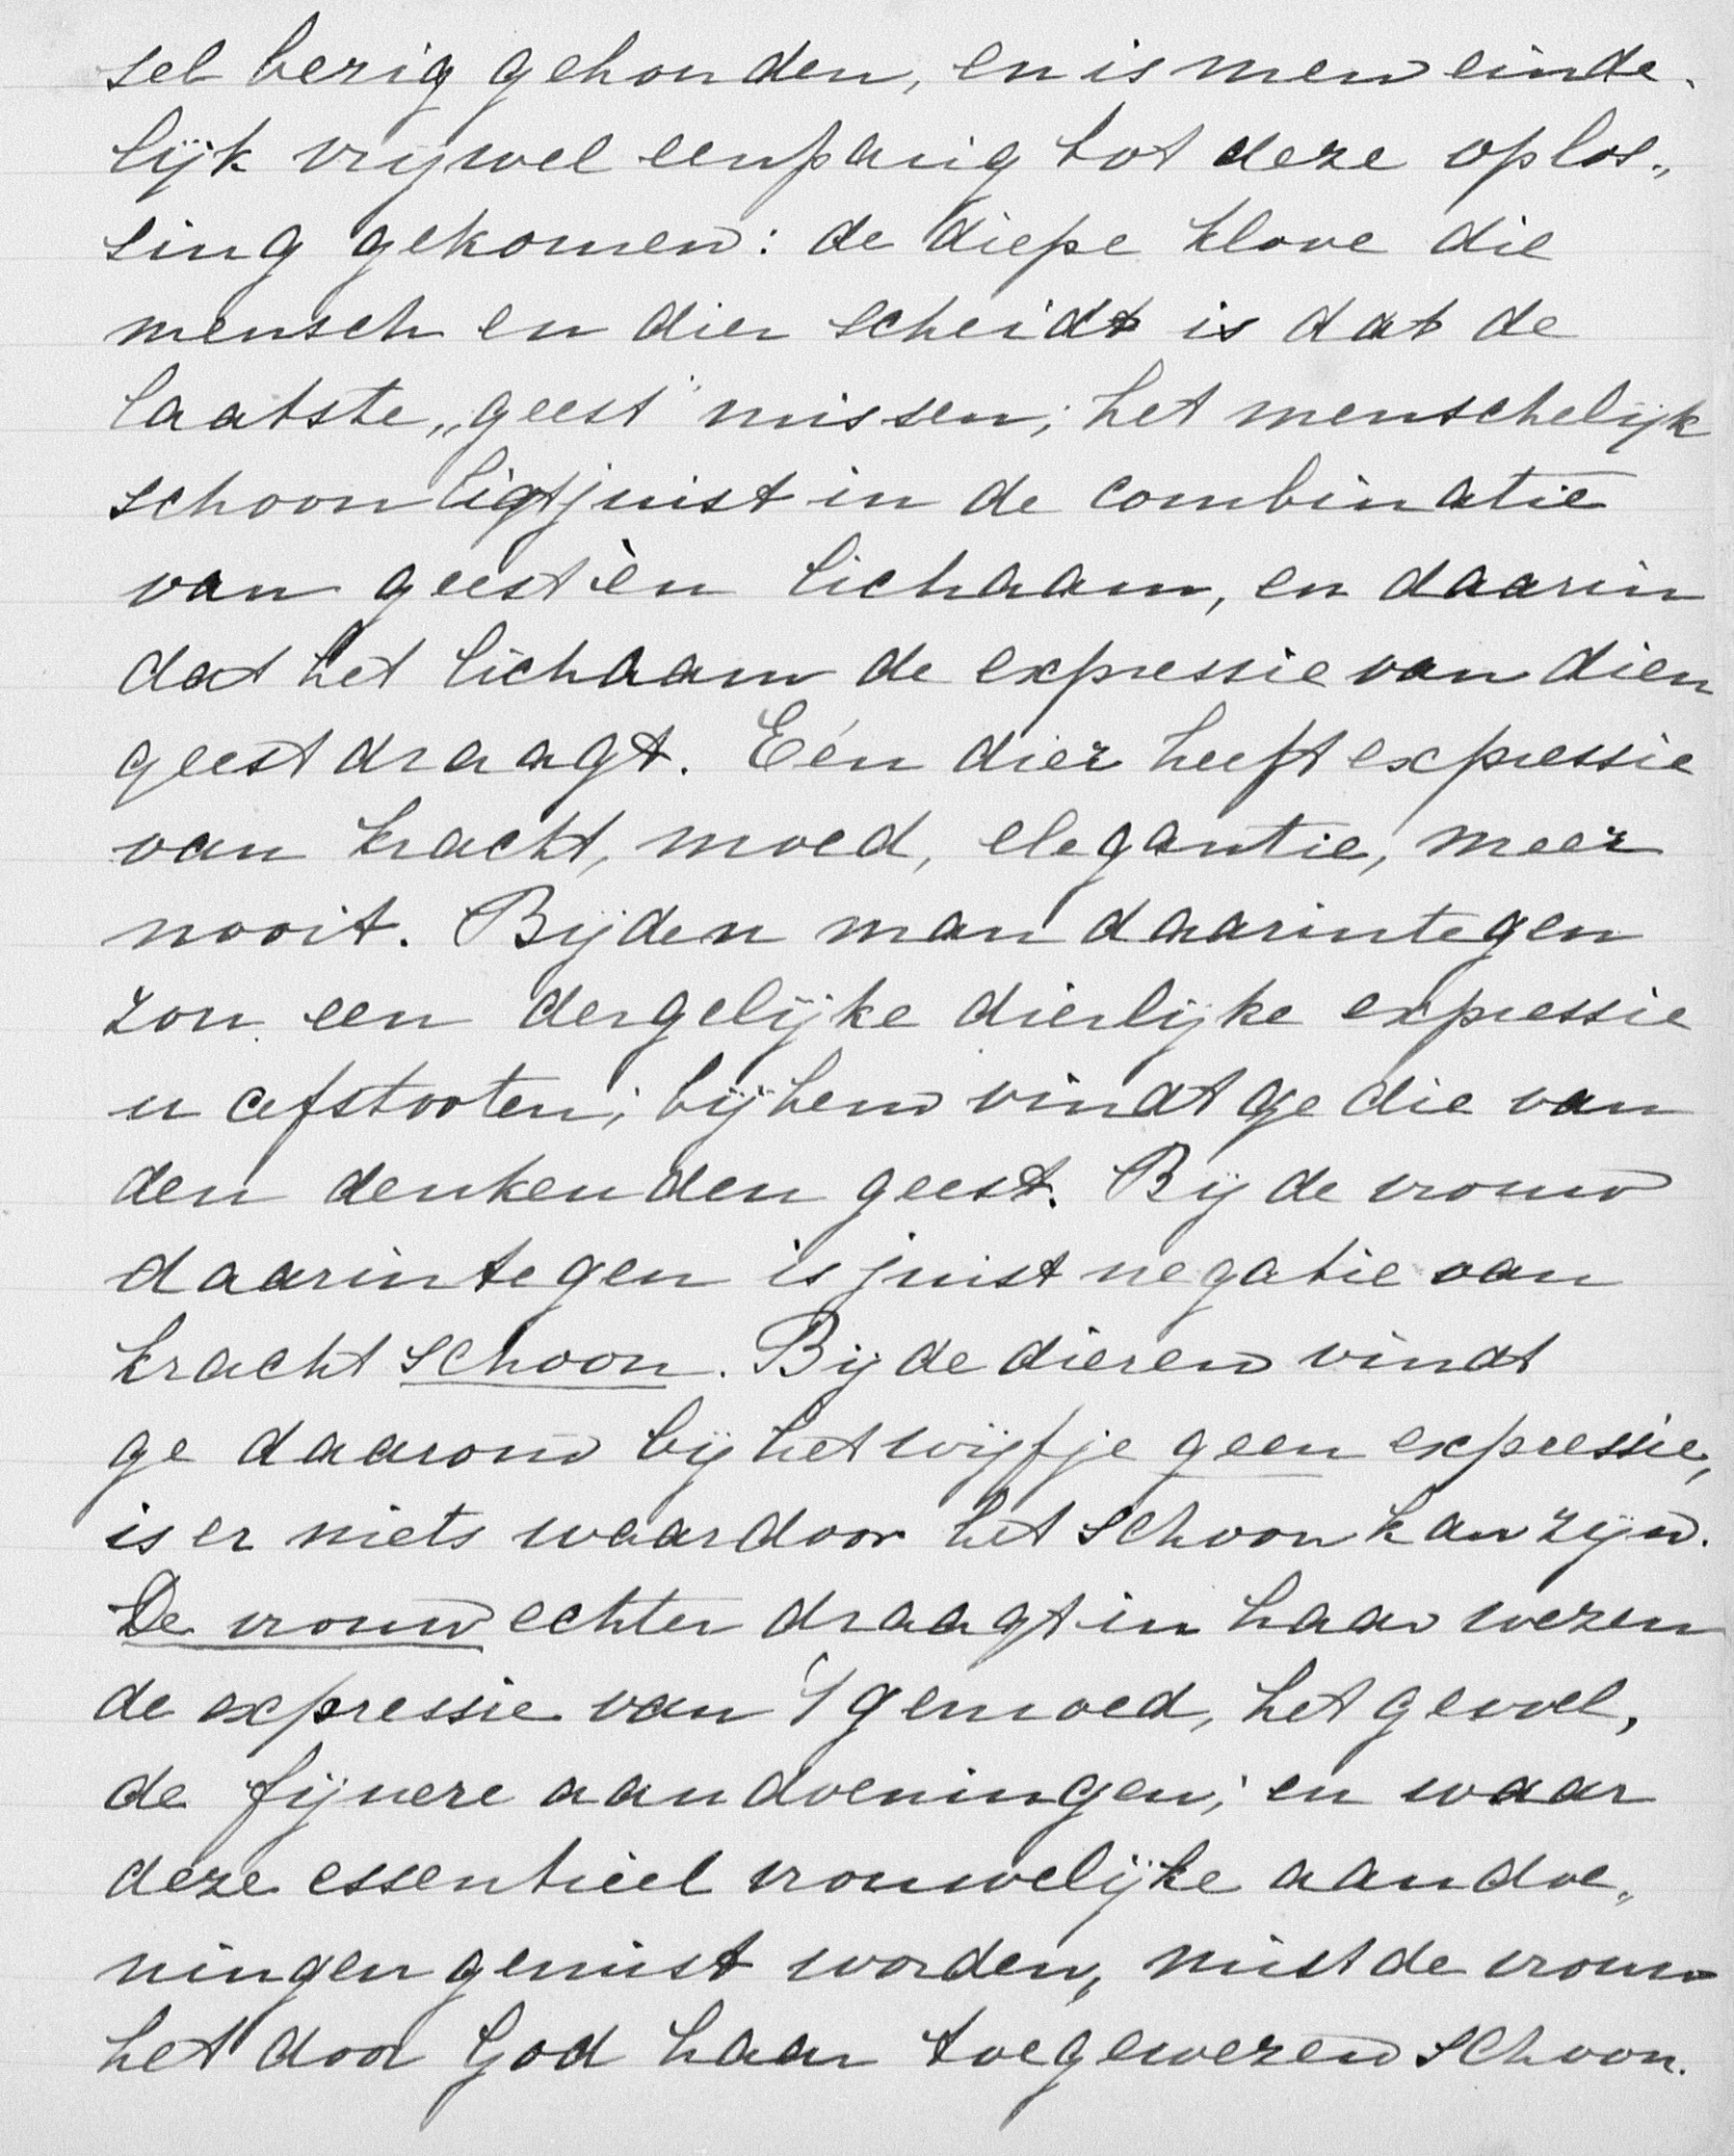 sel bezig gehouden, en is men einde-
lijk vrijwel eenparig tot deze oplos„
sing gekomen: de diepe klove die
mensch en dier scheidt is dat de
laatste „geest" missen; het menschelijk
schoon ligt juist in de combinatie
van geest èn lichaam, en daarin
dat het lichaam de expressie van dien
geest draagt. Eén dier heeft expressie
van kracht, moed, elegantie, meer
nooit. Bij den man daarintegen
zou een dergelijke dierlijke expressie
u afstooten; bij hem vindt ge die van
den denkenden geest. Bij de vrouw
daarintegen is juist negatie van
kracht schoon. Bij de dieren vindt
ge daarom bij het wijfje geen expressie,
is er niets waardoor het schoon kan zijn.
De vrouw echter draagt in haar wezen
de expressie van 't gemoed, het gevoel,
de fijnere aandoeningen; en waar
deze essentieel vrouwelijke aandoe„
ningen gemist worden, mist de vrouw
het door God haar toegewezen schoon.